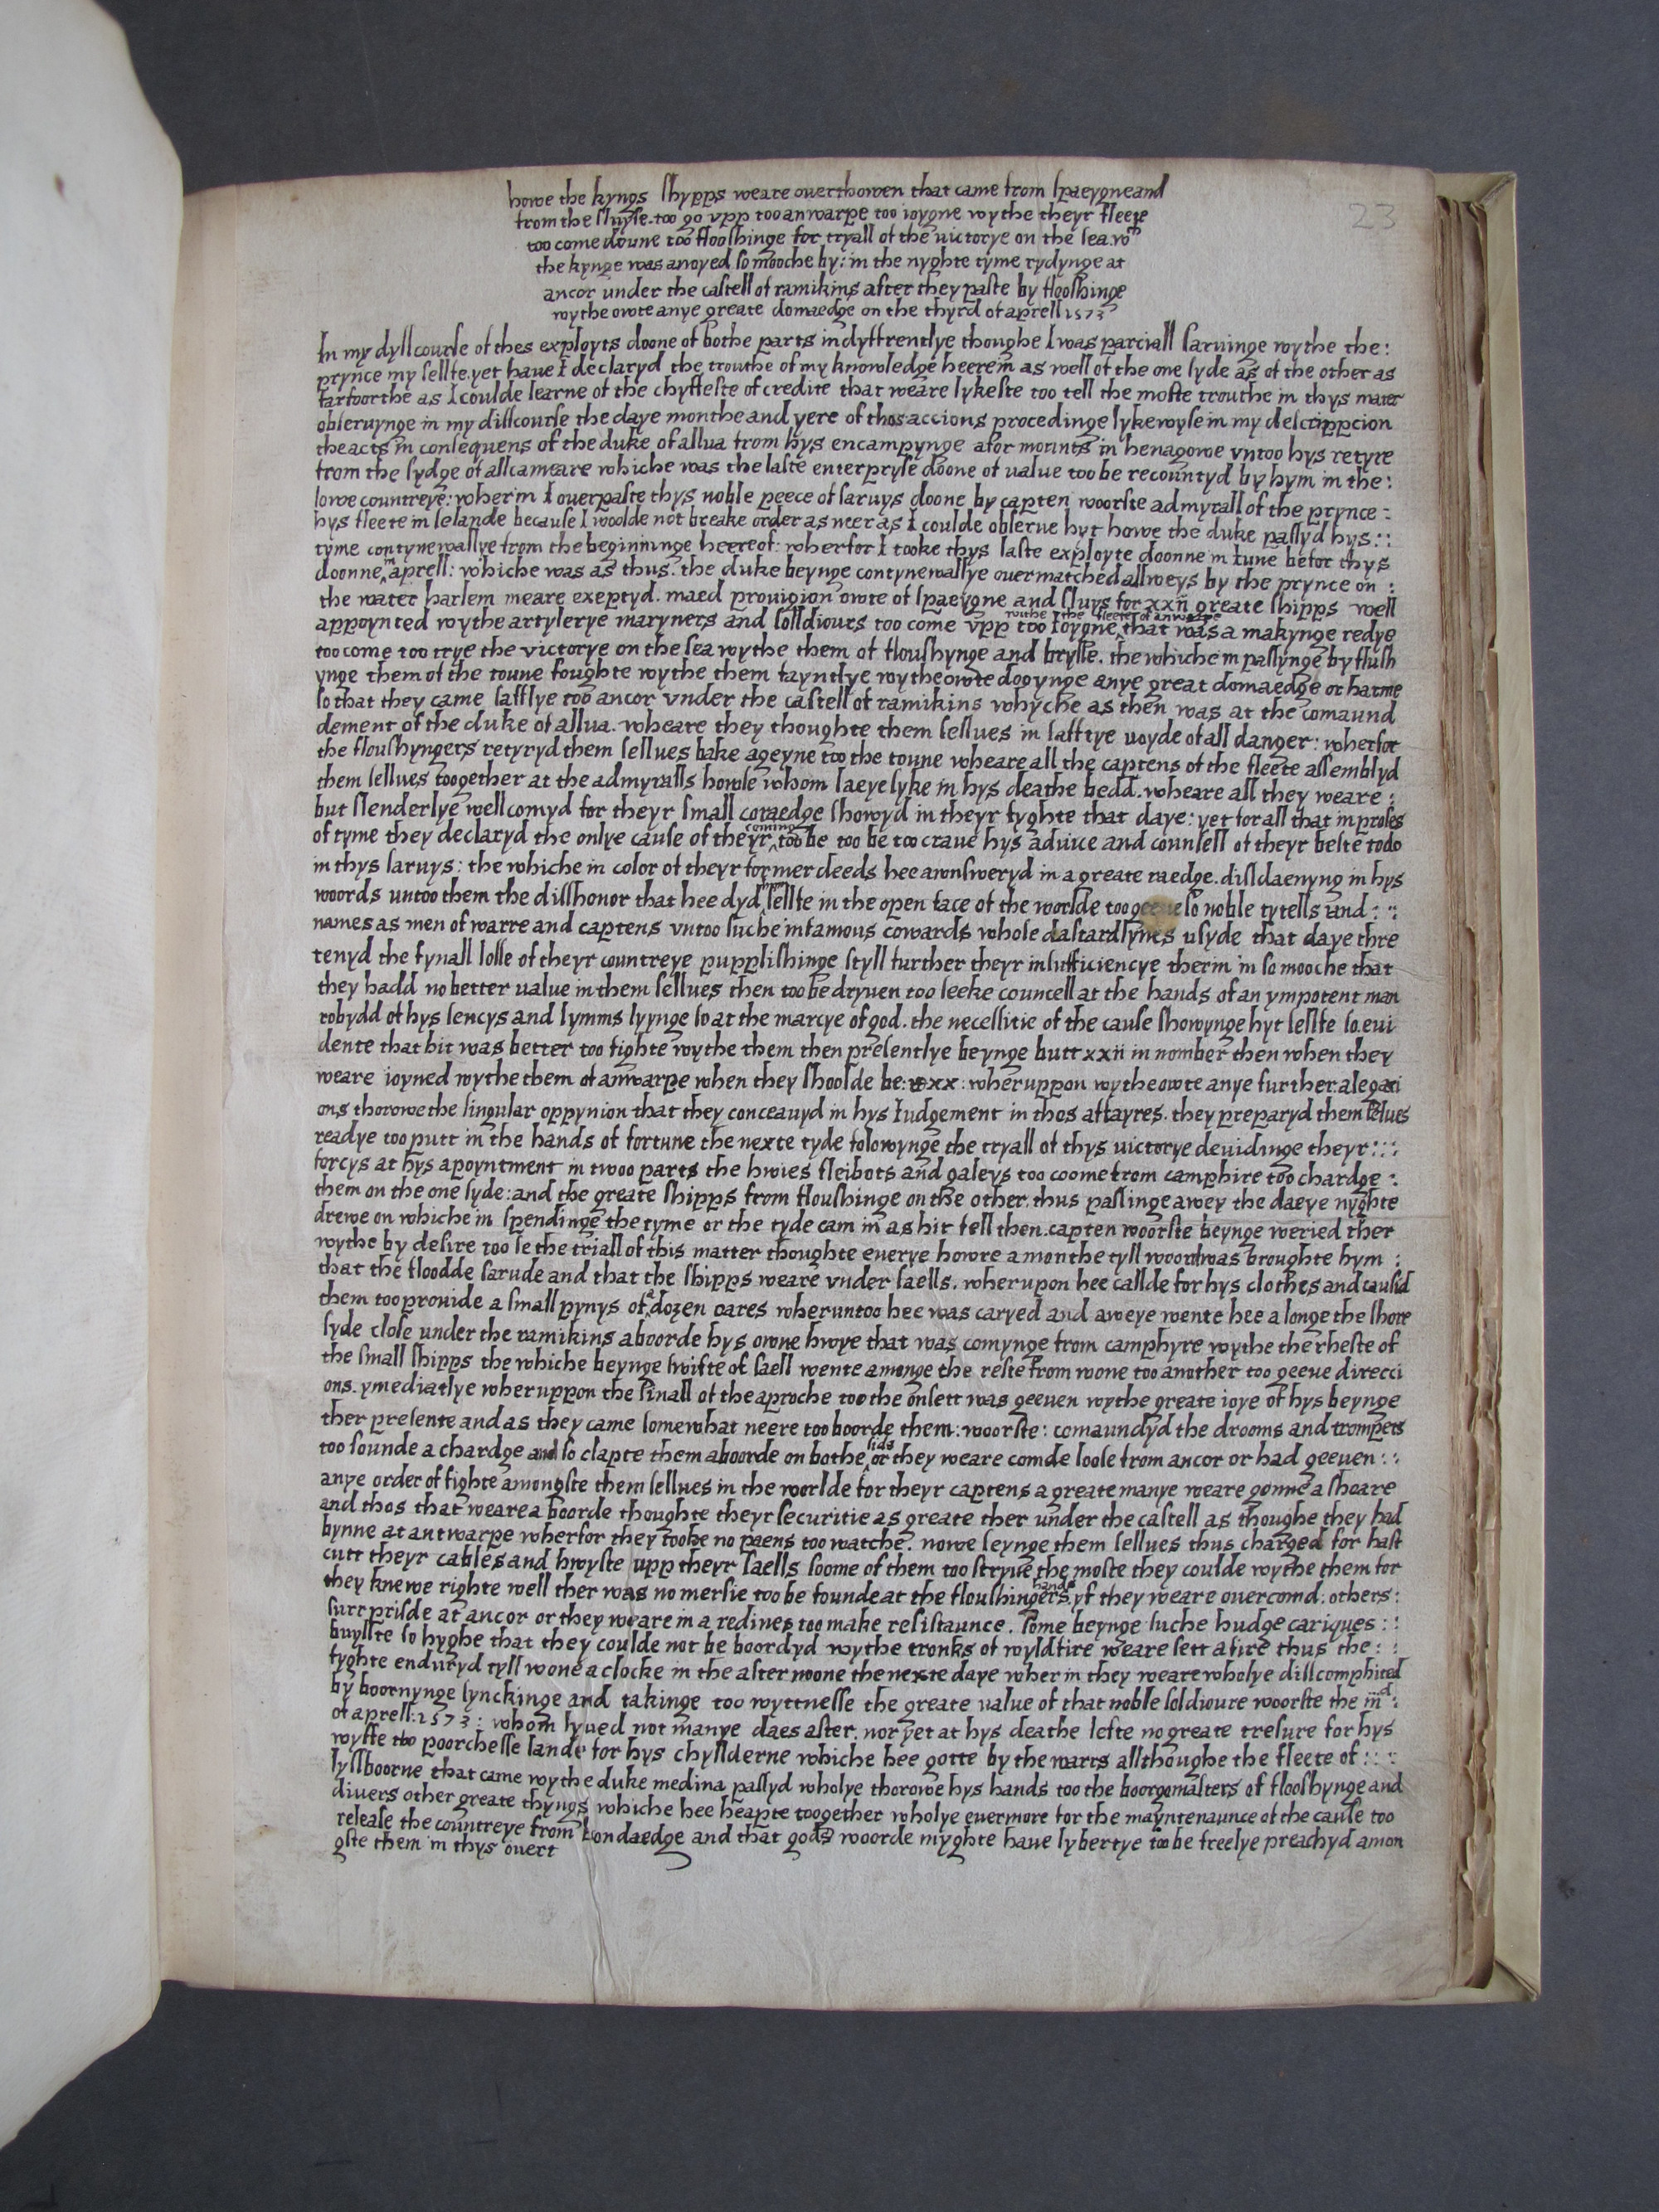 23
howe the kyngs shypps weare overthowen that came from spaeygne and
from the sluyse. too go vpp too anwarpe too ioygne wythe theyr fleete
too come doune too flooshinge for tryall of the uictorye on the sea. wch
the kynge was anoyed so mooche by: in the nyghte tyme rydynge at
ancor under the castell of ramikins after they paste by flooshinge
wytheowte anye greate domaedge on the thyrd of aprell 1573
In my dyllcourse of thes exployts doone of bothe parts indyffrentlye thoughe I was parciall sarvinge wythe the:
prynce my sellfe. yet haue I declaryd the trouthe of my knowledge heerein as well of the one syde as of the other as
farfoorthe as I coulde learne of the chyffeste of credite that weare lykeste too tell the moste trouthe in thys mater
obseruynge in my disscourse the daye monthe and yere of thos accions procedinge lykewyse in my descrippcion
the acts in consequens of the duke of allua from hys encampynge afor mounts in henagowe vntoo hys retyre
from the sydge of allcameare whiche was the laste enterpryse doone of value too be recountyd by hym in the:
lowe countreye: wherin I ouerpaste thys noble peece of saruys doone by capten woorste admyrall of the prynce -
hys fleete in selande because I woolde not breake order as neer as I coulde obserue hyt howe the duke passyd hys::
tyme contynewallye from the beginninge heereof: wherfor I tooke thys laste exployte doonne in Iune befor thys
doonne in aprell: whiche was as thus. the duke beynge contynewallye ouermatched allweys by the prynce on :
the water harlem meare exeptyd. maed prouigion owte of spaeygne and sluys for xxii greate shipps well
appoynted wythe artylerye maryners and solldiours too come vpp too Ioygne wythe the fleete of anwarpe that was a makynge redye
too come too trye the victorye on the sea wythe them of floushynge and brysse. the whiche in passynge by flush
ynge them of the toune foughte wythe them fayntlye wytheowte dooynge anye great domaedge or harme
so that they came safflye too ancor vnder the castell of ramikins whyche as then was at the comaund
dement of the duke of allua. wheare they thoughte them sellues in safftye uoyde of all danger: wherfor
the floushyngers retyryd them sellues bake ageyne too the toune wheare all the captens of the fleete assemblyd
them sellues toogether at the admyralls howse whom laeye lyke in hys deathe bedd. wheare all they weare :
but slenderlye wellcomyd for theyr small coraedge showyd in theyr fyghte that daye: yet for all that in proses
of tyme they declaryd the onlye cause of theyr coming too be too be too craue hys aduice and counsell of theyr beste todo
in thys saruys: the whiche in color of theyr former deeds hee awnsweryd in a greate raedge. disldaenyng in hys
woords untoo them the disshonor that hee dyd hym sellfe in the open face of the worlde too geeue so noble tytells und : :
names as men of warre and captens vntoo suche infamous cowards whose dastardlynes usyde that daye thre
tenyd the fynall losse of theyr countreye pupplishinge styll further theyr insufficiencye therin in so mooche that
they hadd no better value in them sellues then too be dryuen too seeke councell at the hands of an ympotent man
robydd of hys sencys and lymms lyynge so at the marcye of god. the necessitie of the cause showynge hyt sellfe so. eui
dente that hit was better too fighte wythe them then presentlye beynge butt xxii in nomber then when they
weare ioyned wythe them of anwarpe when they shoolde be: xx: wheruppon wytheowte anye further. alegaci
ons thorowe the singular oppynion that they conceauyd in hys Iudgement in thos affayres. they preparyd them selues
readye too putt in the hands of fortune the nexte tyde folowynge the tryall of thys uictorye deuidinge theyr:::
forcys at hys apoyntment in twoo parts the hwies fleibots and galeys too coome from camphire too chardge :
them on the one syde: and the greate shipps from floushinge on the other. thus passinge awey the daeye nyghte
drewe on whiche in spendinge the tyme or the tyde cam in as hit fell then. capten woorste beynge weried ther
wythe by desire too se the triall of this matter thoughte euerye howre a monthe tyll woord was broughte hym :
that the floodde sarude and that the shipps weare vnder saells. wherupon hee callde for hys clothes and causid
them too prouide a small pynys of a dozen oares wheruntoo hee was caryed and aweye wente hee a longe the shore
syde close under the ramikins aboorde hys owne hwye that was comynge from camphyre wythe the rheste of
the small shipps the whiche beynge swifte of saell wente amonge the reste from wone too another too geeue direcci
ons. ymediatlye wheruppon the sinall of the aproche too the onsett was geeuen wythe greate ioye of hys beynge
ther presente and as they came somewhat neere too boorde them: woorste: comaundyd the drooms and trompets
too sounde a chardge and so clapte them aboorde on bothe sids or they weare comde loose from ancor or had geeuen : :
anye order of fighte amongste them sellues in the worlde for theyr captens a greate manye weare gonne a shoare
and thos that weare a boorde thoughte theyr securitie as greate ther under the castell as thoughe they had
bynne at antwarpe wherfor they tooke no paens too watche. nowe seynge them sellues thus charged for hast
cutt theyr cables and hwyste upp theyr saells soome of them too stryue the moste they coulde wythe them for
they knewe righte well ther was no mersie too be founde at the floushingers hands yf they weare ouercomd: others:
surrprisde at ancor or they weare in a redines too make resistaunce. some beynge suche hudge cariques : :
buyllte so hyghe that they coulde not be boordyd wythe tronks of wyldfire weare sett a fire thus the: :
fyghte enduryd tyll wone a clocke in the after noone the nexte daye wher in they weare wholye disscomphited
by boornynge synckinge and takinge too wyttnesse the greate value of that noble soldioure woorste the iiid :
of aprell: 1573: whom lyued not manye daes after. nor yet at hys deathe lefte no greate tresure for hys
wyffe too poorchesse lande for hys chyllderne whiche hee gotte by the warrs allthoughe the fleete of : : :
lyssboorne that came wythe duke medina passyd wholye thorowe hys hands too the boorgomasters of flooshynge and
divers other greate thyngs whiche hee heapte toogether wholye euermore for the mayntenaunce of the cause too
release the countreye from bondaedge and that gods woorde myghte haue lybertye too be freelye preachyd amon
gste them in thys ouert